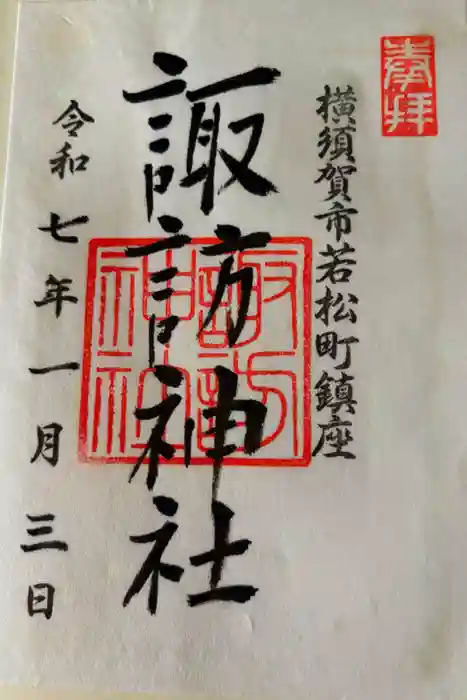 奉拝
横須賀市若松町鎮座
諏訪神社
諏訪神社
令和七年一月三日